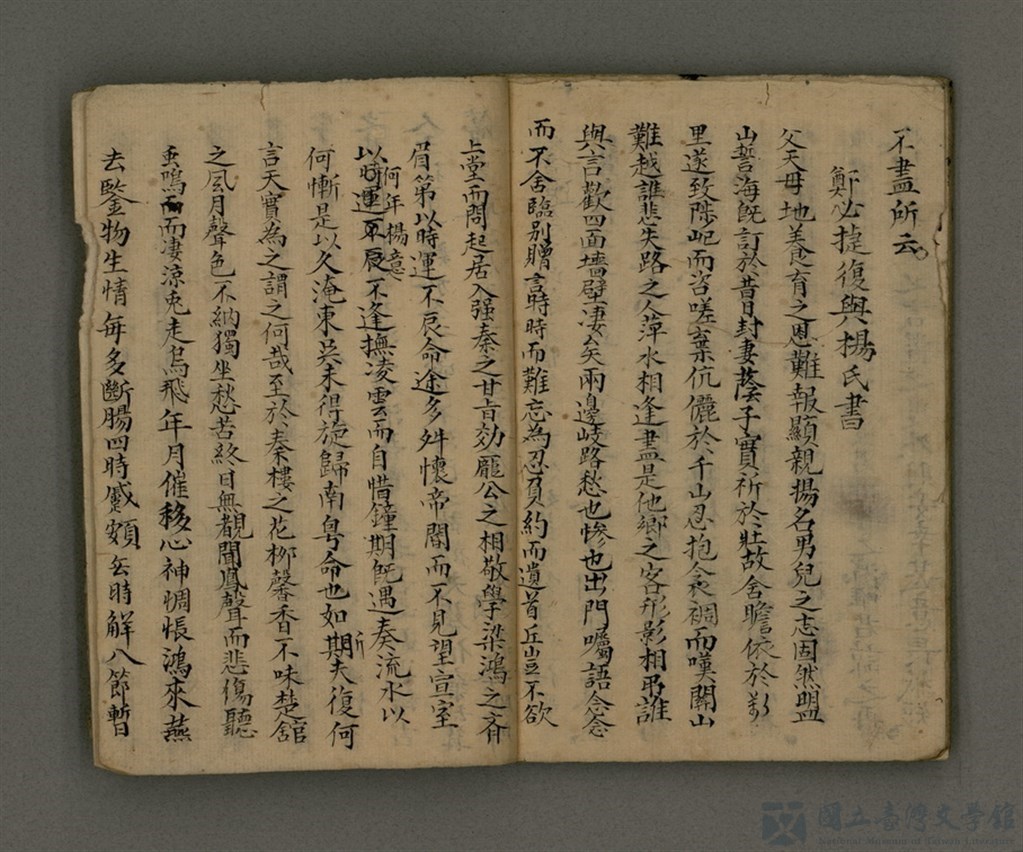 不盡所云
鄭必捷復與楊氏書
父天母地養育之恩難報顯親揚名男兒之志固然盟
山誓海既訂於昔日封妻蔭子實祈於壯故舍瞻依於萬
里遂致陟屺而咨嗟棄伉儷於千山忍抱衾裯而嘆關山
難越誰悲失路之人萍水相逢盡是他鄉之客形影相弔誰
與言歡四面墻壁凄矣兩邊岐路愁也慘也出門囑語念念
而不舍臨別贈言時時而難忘為忍負約而遺首丘豈不欲
上堂而問起居入强秦之甘旨効龐公之相敬學梁鴻之齊
眉第以時運不辰命途多舛懷帝閽而不見望宣室
以何年楊意不逢撫凌雲而自惜鐘期既遇奏流水以
何慚是以久淹東吴未得旋歸南粤命也如斯夫復何
言天實為之謂之何哉至於秦樓之花栁馨香不味楚舘
之風月聲色不納獨坐愁苦終日無覩聞鳳聲而悲傷聽
虫鳴而凄涼兎走烏飛年月催移心神惆悵鴻來燕
去鑒物生情每多斷腸四時蹙頞乞時解八節暫
國立臺灣文學館
National Museum of Taiwan Literature